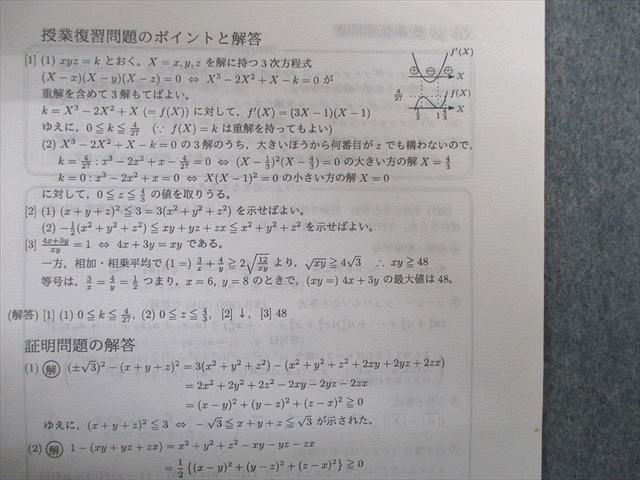 授業復習問題のポイントと解答
[1] (1) xyz = k とおく。X = x, y, z を解に持つ3次方程式
(X − x)(X − y)(X − z) = 0 ⇔ X³ − 2X² + X − k = 0 が
重解を含めて3解もてばよい。
k = X³ − 2X² + X (= f(X)) に対して, f′(X) = (3X − 1)(X − 1)
ゆえに, 0 ≦ k ≦ 4/27 (∵ f(X) = k は重解を持ってもよい)
f′(X)
⊕ ⊖ ⊕ X
4/27 f(X)
X
1/3 1 4/3
(2) X³ − 2X² + X − k = 0 の3解のうち, 大きいほうから何番目が z でも構わないので,
k = 4/27 : x³ − 2x² + x − 4/27 = 0 ⇔ (X − 1/3)²(X − 4/3) = 0 の大きい方の解 X = 4/3
k = 0 : x³ − 2x² + x = 0 ⇔ X(X − 1)² = 0 の小さい方の解 X = 0
に対して, 0 ≦ z ≦ 4/3 の値を取りうる。
[2] (1) (x + y + z)² ≦ 3 = 3(x² + y² + z²) を示せばよい。
(2) −1/2(x² + y² + z²) ≦ xy + yz + zx ≦ x² + y² + z² を示せばよい。
[3] (4x+3y)/xy = 1 ⇔ 4x + 3y = xy である。
一方, 相加・相乗平均で (1 =) 3/x + 4/y ≧ 2√(12/xy) より, √xy ≧ 4√3 ∴ xy ≧ 48
等号は, 3/x = 4/y = 1/2 つまり, x = 6, y = 8 のときで, (xy =) 4x + 3y の最大値は 48。
(解答) [1] (1) 0 ≦ k ≦ 4/27, (2) 0 ≦ z ≦ 4/3, [2] ↓, [3] 48
証明問題の解答
(1) 解 (±√3)² − (x + y + z)² = 3(x² + y² + z²) − (x² + y² + z² + 2xy + 2yz + 2zx)
= 2x² + 2y² + 2z² − 2xy − 2yz − 2zx
= (x − y)² + (y − z)² + (z − x)² ≧ 0
ゆえに, (x + y + z)² ≦ 3 ⇔ −√3 ≦ x + y + z ≦ √3 が示された。
(2) 解 1 − (xy + yz + zx) = x² + y² + z² − xy − yz − zx
= 1/2 {(x − y)² + (y − z)² + (z − x)²} ≧ 0